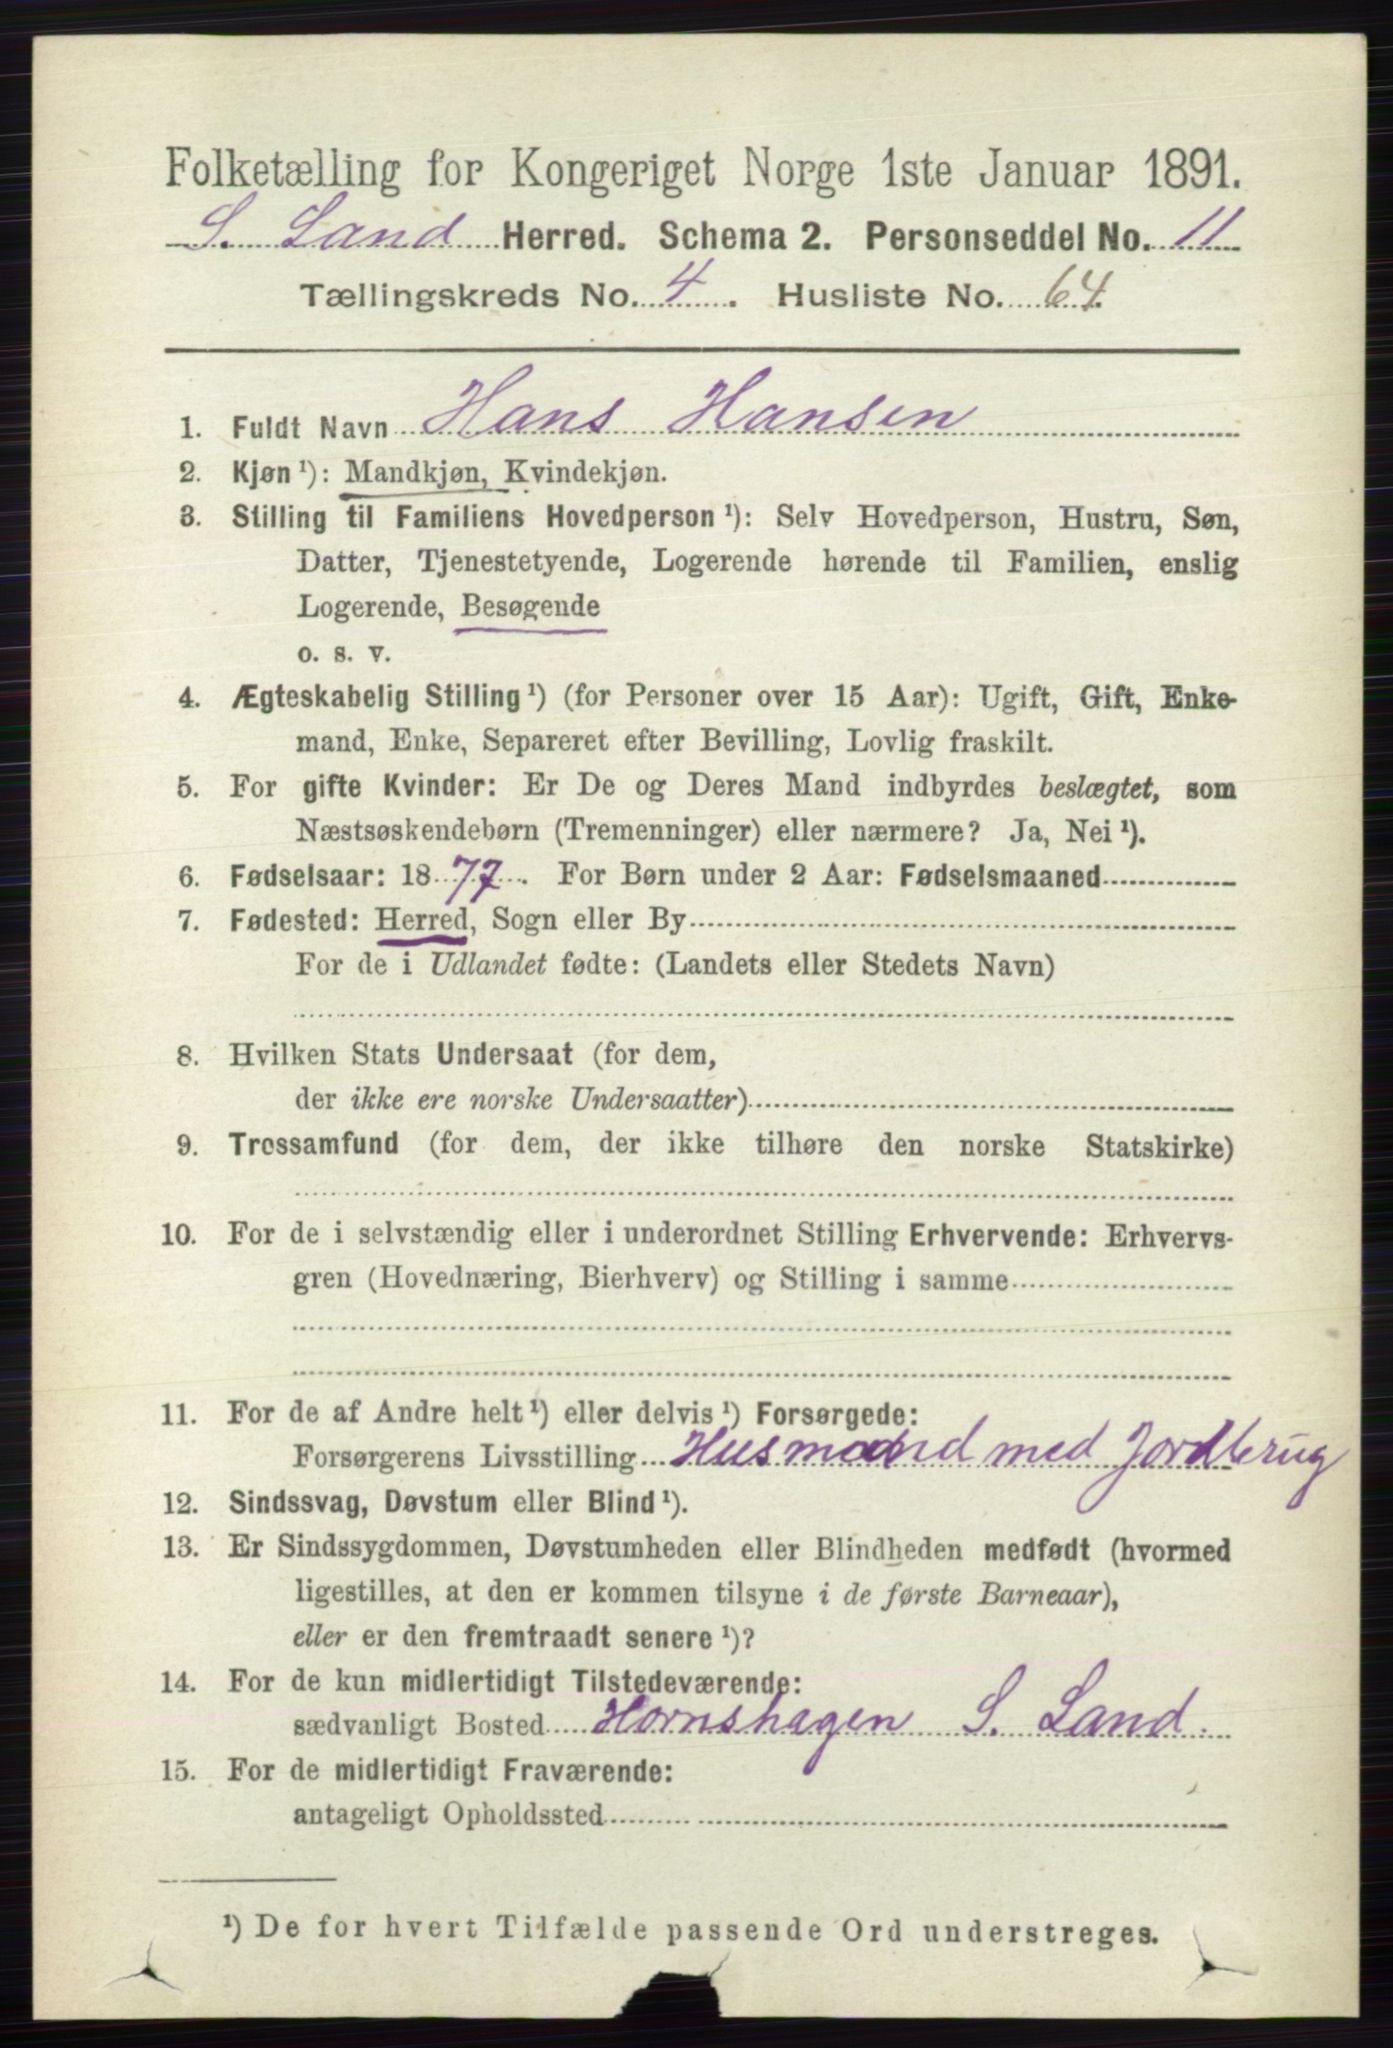 Folketælling for Kongeriget Norge 1ste Januar 1891.
S. Land Herred. Schema 2. Personseddel No. 11
Tællingskreds No. 4. Husliste No. 64.
1. Fuldt Navn Hans Hansen
2. Kjøn ¹): Mandkjøn, Kvindekjøn.
3. Stilling til Familiens Hovedperson ¹): Selv Hovedperson, Hustru, Søn,
Datter, Tjenestetyende, Logerende hørende til Familien, enslig
Logerende, Besøgende
o. s. v.
4. Ægteskabelig Stilling ¹) (for Personer over 15 Aar): Ugift, Gift, Enke-
mand, Enke, Separeret efter Bevilling, Lovlig fraskilt.
5. For gifte Kvinder: Er De og Deres Mand indbyrdes beslægtet, som
Næstsøskendebørn (Tremenninger) eller nærmere? Ja, Nei ¹).
6. Fødselsaar: 1877. For Børn under 2 Aar: Fødselsmaaned
7. Fødested: Herred, Sogn eller By
For de i Udlandet fødte: (Landets eller Stedets Navn)
8. Hvilken Stats Undersaat (for dem,
der ikke ere norske Undersaatter)
9. Trossamfund (for dem, der ikke tilhøre den norske Statskirke)
10. For de i selvstændig eller i underordnet Stilling Erhvervende: Erhvervs-
gren (Hovednæring, Bierhverv) og Stilling i samme
11. For de af Andre helt ¹) eller delvis ¹) Forsørgede:
Forsørgerens Livsstilling Husmand med Jordbrug
12. Sindssvag, Døvstum eller Blind ¹).
13. Er Sindssygdommen, Døvstumheden eller Blindheden medfødt (hvormed
ligestilles, at den er kommen tilsyne i de første Barneaar),
eller er den fremtraadt senere ¹)?
14. For de kun midlertidigt Tilstedeværende:
sædvanligt Bosted Hornshagen S. Land.
15. For de midlertidigt Fraværende:
antageligt Opholdssted
¹) De for hvert Tilfælde passende Ord understreges.